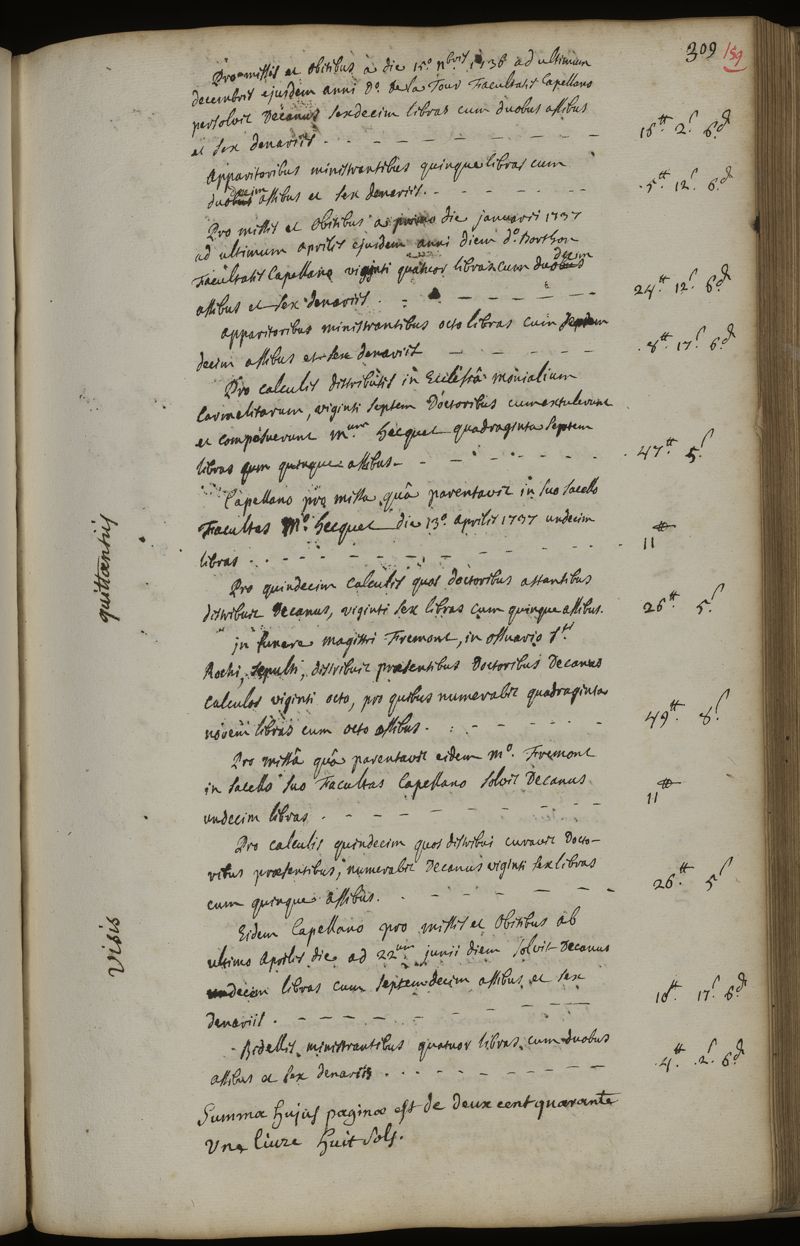 309 159
Pro missis et obitibus a die 15º 9bris 1736 ad ultimum
decembris ejusdem anni Dº. de la Tour Facultatis Capellano
persolvit Decanus sexdecim libras cum duobus assibus
et sex denariis. - - - - - - - - 16tt 2s 6d
Apparitoribus ministrantibus quinque libras cum
duodecim assibus et sex denariis. - - - - - 5tt 12s 6d
Pro missis et obitibus a primo die januarii 1737
ad ultimum aprilis ejusdem anni diem Dº.
Facultatis Capellano viginti quatuor libras cum duodecim
assibus et sex denariis. - - - - - - 24tt 12s 6d
apparitoribus ministrantibus octo libras cum septem
decim assibus et sex denariis - - - - - 8tt 17s 6d
Pro calculis distributis in Ecclesiâ monialium
Carmelitarum, viginti septem Doctoribus cum extulerunt
et composuerunt Mum Hecquet quadraginta septem
libras cum quinque assibus - - - - - - 47tt 5s
Capellano pro missa quâ parentavit in suo sacello
Facultas Mº. Hecquet die 13º. aprilis 1737 undecim
libras . - - - - - - - - - 11tt
Pro quindecim calculis quos doctoribus astantibus
distribuit Decanus, viginti sex libras cum quinque assibus. 26tt 5s
in funere magistri Fremont, in ossuario Sti
Rochi, sepulti, distribuit praesentibus Doctoribus Decanus
calculos viginti octo, pro quibus numeravit quadraginta
novem libras cum octo assibus. - - - - - - 49tt 8s
Pro missâ quâ parentavit eidem Mº. Fremont
in sacello suo Facultas Capellano solvit Decanus
undecim libras . - - - - - - - - 11tt
Pro calculis quindecim quos distribui curavit Docto-
ribus praesentibus, numeravit Decanus viginti sex libras
cum quinque assibus. - - - - - - 26tt 5s
Eidem Capellano pro missis et obitibus ab
ultimo Aprilis die ad 22um junii diem solvit Decanus
decim libras cum septemdecim assibus et sex
denariis . - - - - - - - - - 16tt 17s 6d
Bidellis ministrantibus quatuor libras cum duobus
assibus et sex denariis . - - - - - - - 4tt 2s 6d
Summa hujus paginae est de deux cent quarante
Une livre huit sols.
quittantiis
Visis